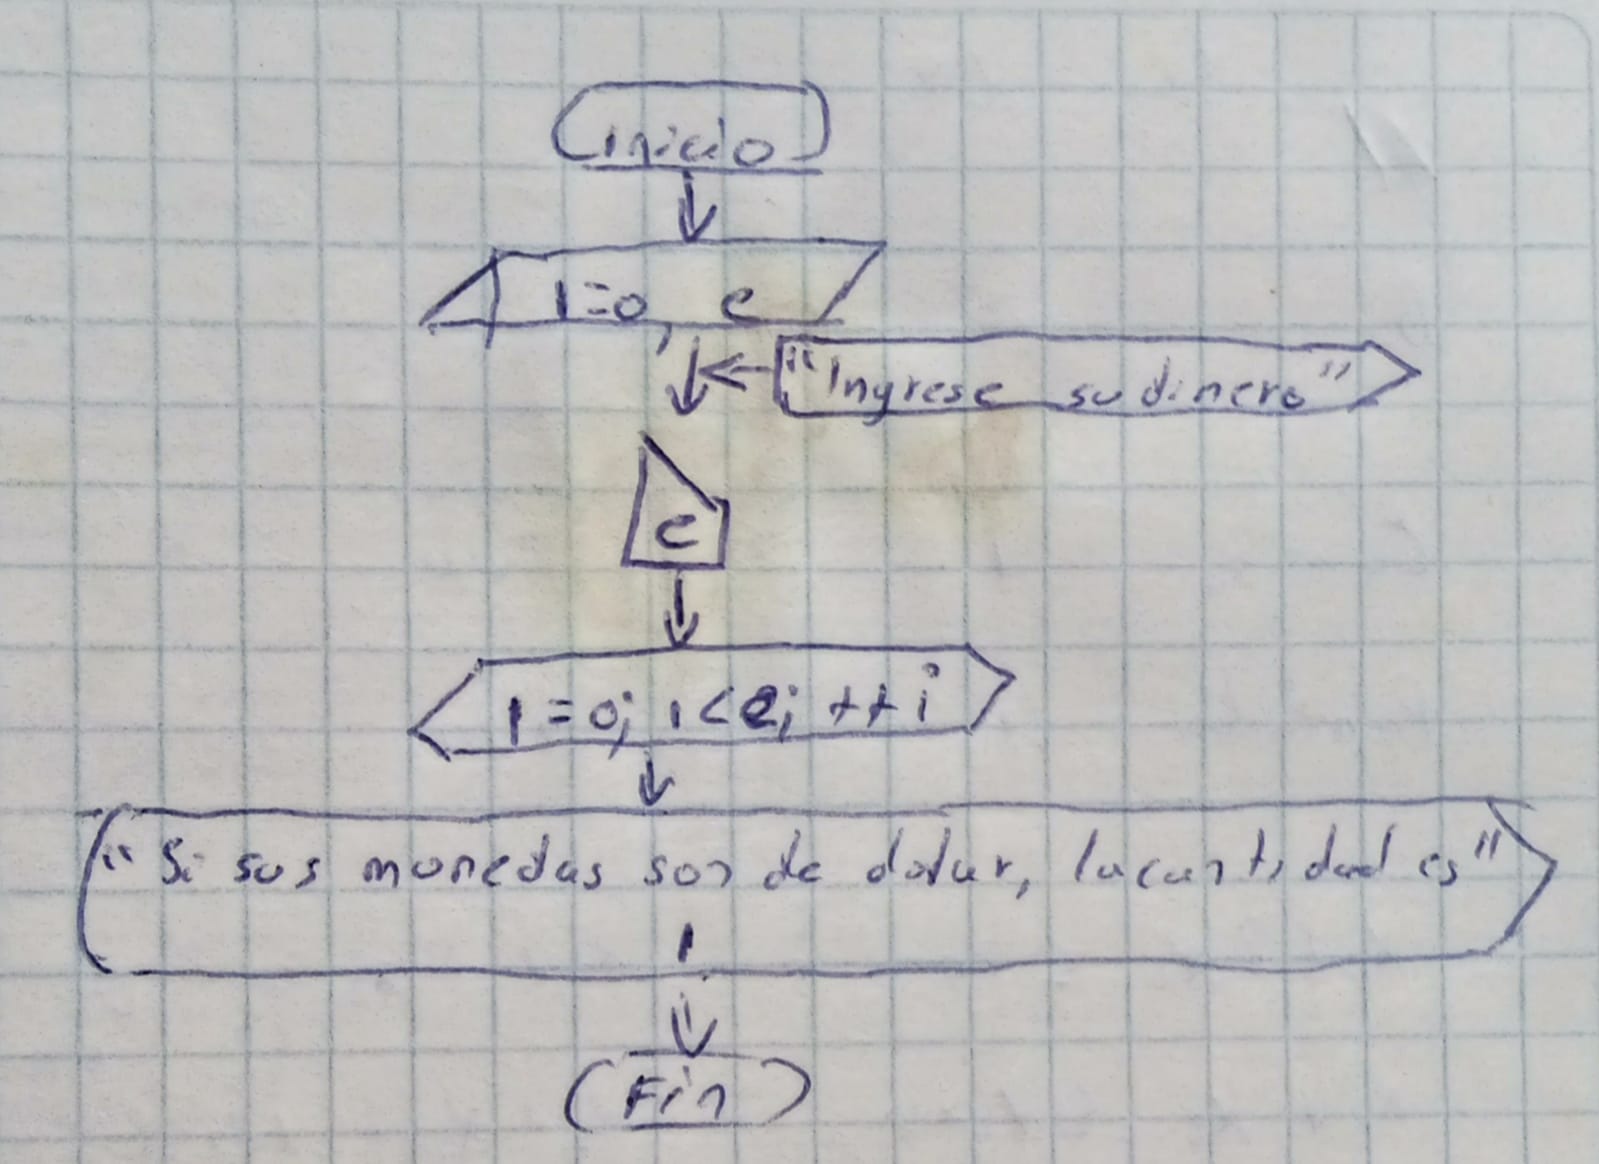 inicio
i=0, e
"Ingrese su dinero"
e
i=0; i<e; ++i
"Si sus monedas son de dolar, la cantidad es"
i
Fin